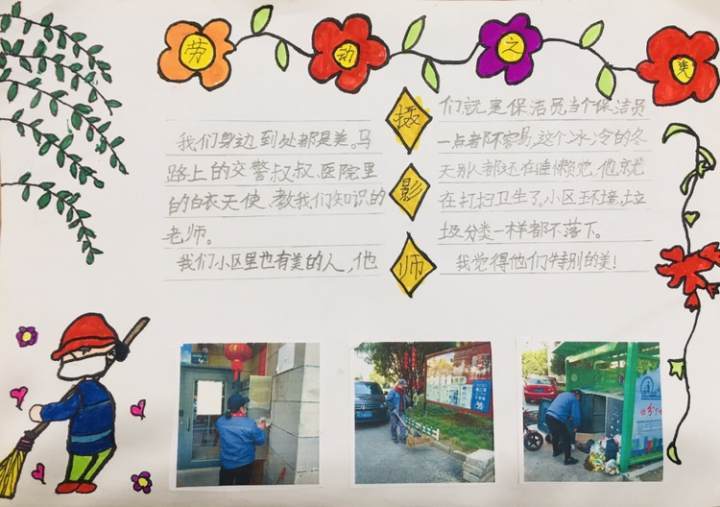 劳动之美
我们身边到处都是美。马
路上的交警叔叔、医院里
的白衣天使、教我们知识的
老师。
我们小区里也有美的人,他
摄
影
师
们就是保洁员当个保洁员
一点都不容易,这个冰冷的冬
天别人都还在睡懒觉,他就
在打扫卫生了。小区环境、垃
圾分类一样都不落下。
我觉得他们特别的美!